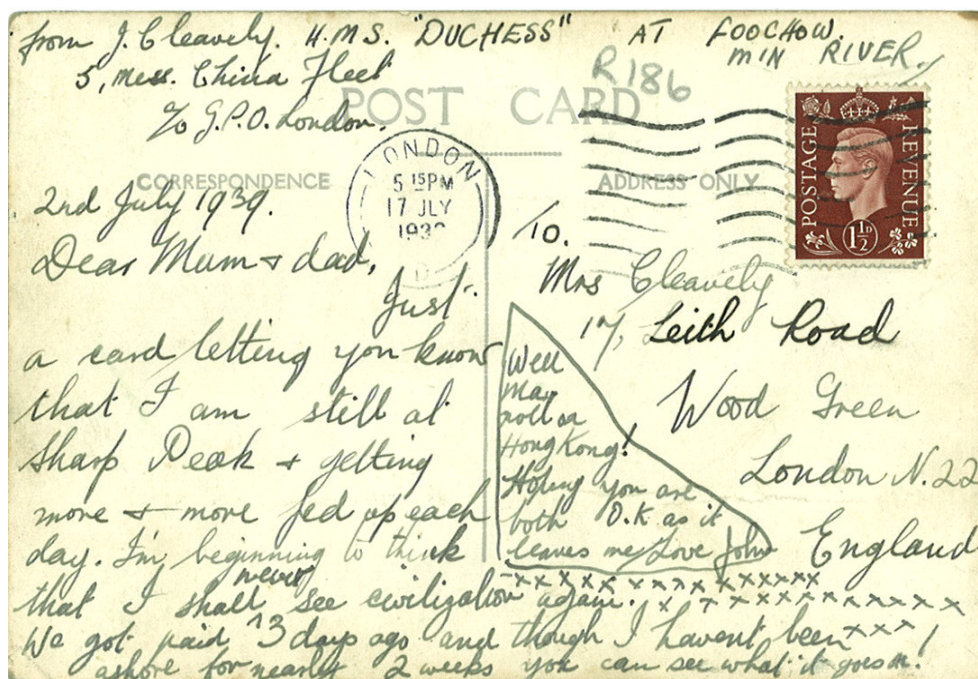 from J. Cleavely. H.M.S. "DUCHESS" AT FOOCHOW.
MIN RIVER.
5, Mess. China Fleet
c/o G.P.O. London.
R186
POST CARD
CORRESPONDENCE
ADDRESS ONLY
LONDON
5 15PM
17 JLY
193
POSTAGE REVENUE
1½D
2nd July 1939.
Dear Mum & dad,
Just
a card letting you know
that I am still at
Sharp Peak & getting
more & more fed up each
day. I'm beginning to think
that I shall never see civilization again.
We got paid 3 days ago and though I havent been
ashore for nearly 2 weeks you can see what it goes in!
Well
Ma,
roll on
Hong Kong!
Hoping you are
both O.K as it
leaves me, Love John
x x x x x x x x x x x x x x x x x
x x x x x x x x x x x x x
x x x x !
To.
Mrs Cleavely
17, Leith Road
Wood Green
London N.22
England